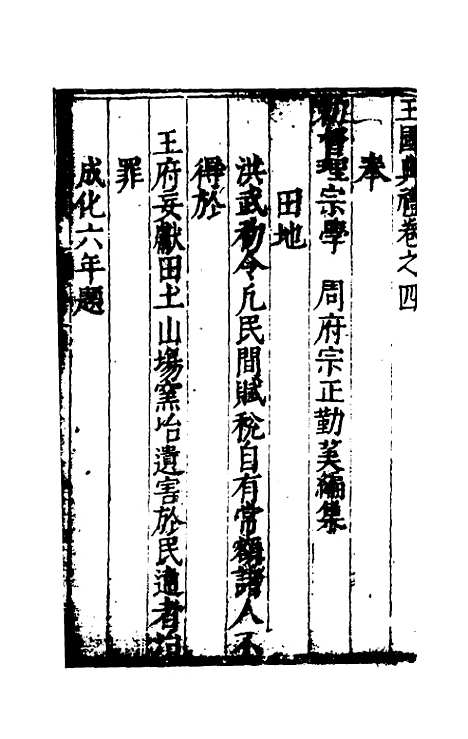 王國典禮卷之四
奉
勑督理宗學　周府宗正勤羙編集
田地
洪武初令凡民間賦稅自有常額諸人不
得於
王府妄獻田土山場窯冶遺害於民違者治
罪
成化六年題